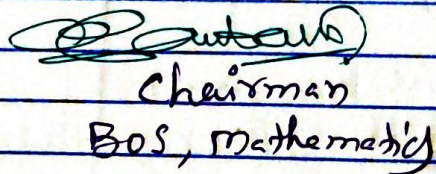 Chairman
BOS, Mathematics